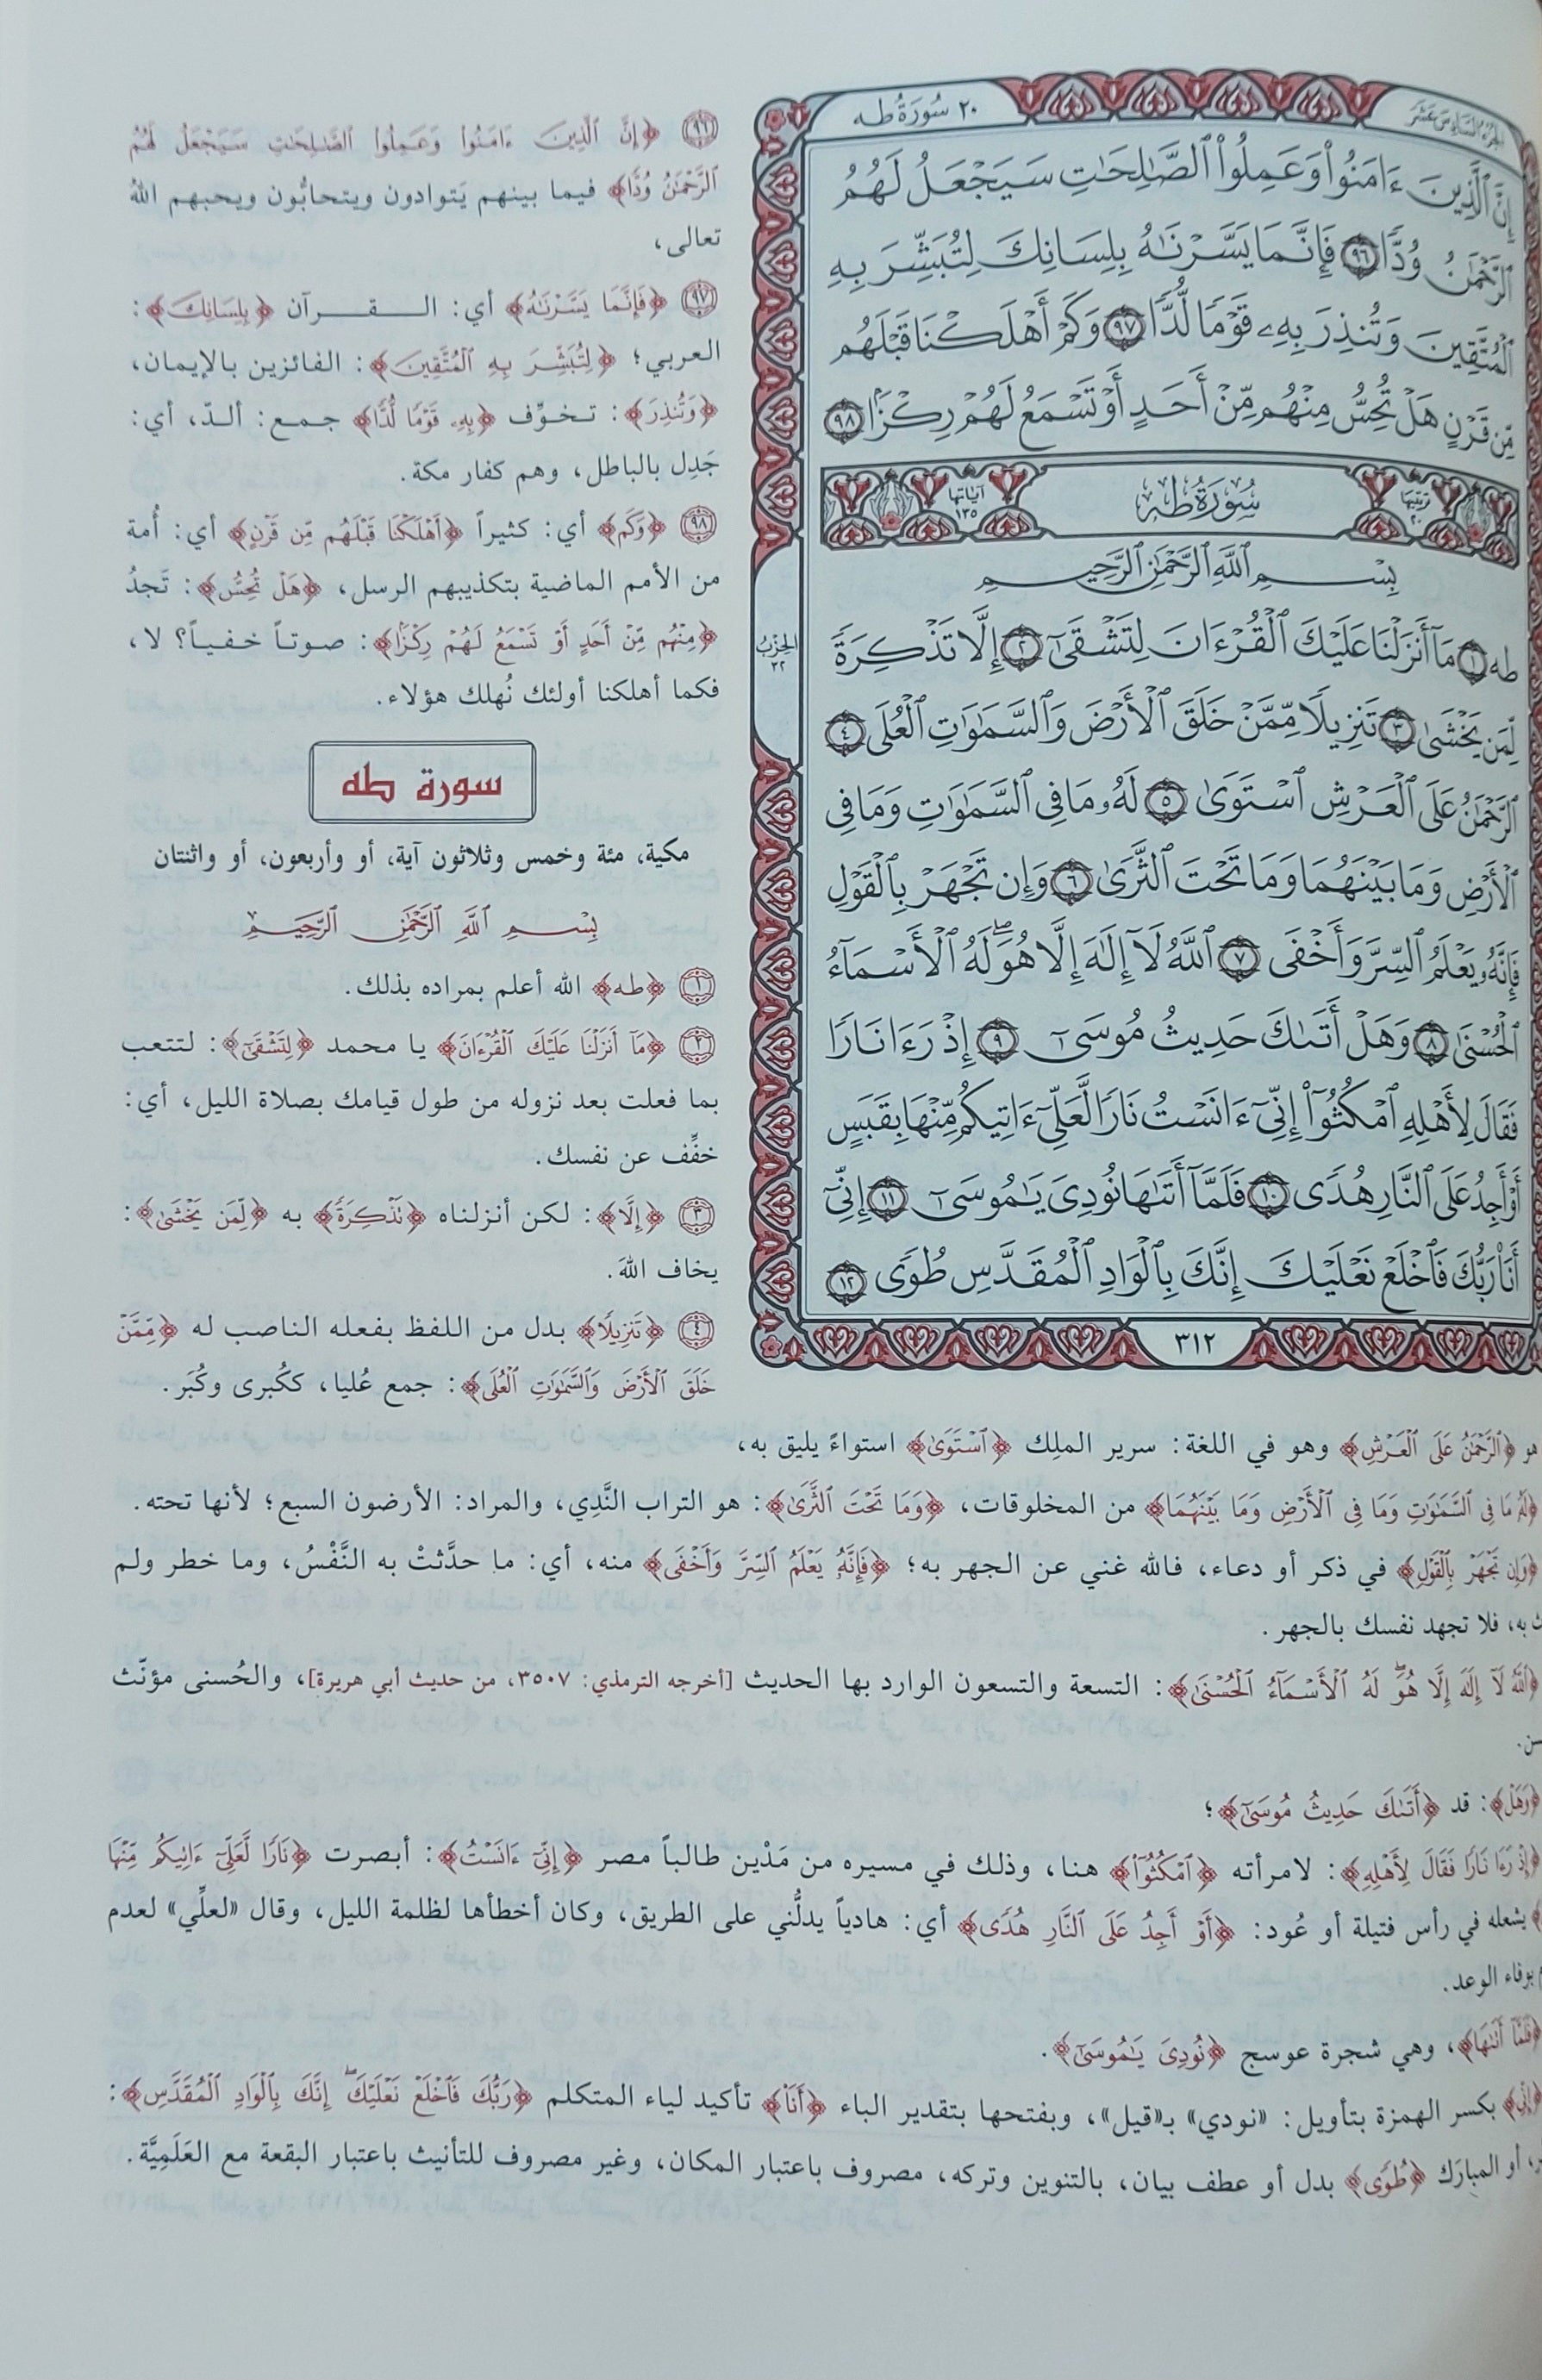 ٢٠ سُورَةُ طه
الجزء السادس عشر
إِنَّ ٱلَّذِينَ ءَامَنُوا۟ وَعَمِلُوا۟ ٱلصَّـٰلِحَـٰتِ سَيَجْعَلُ لَهُمُ
ٱلرَّحْمَـٰنُ وُدًّا ٩٦ فَإِنَّمَا يَسَّرْنَـٰهُ بِلِسَانِكَ لِتُبَشِّرَ بِهِ
ٱلْمُتَّقِينَ وَتُنذِرَ بِهِۦ قَوْمًا لُّدًّا ٩٧ وَكَمْ أَهْلَكْنَا قَبْلَهُم
مِّن قَرْنٍ هَلْ تُحِسُّ مِنْهُم مِّنْ أَحَدٍ أَوْ تَسْمَعُ لَهُمْ رِكْزًۢا ٩٨
ترتيبها ٢٠ سُورَةُ طه آياتها ١٣٥
بِسْمِ ٱللَّهِ ٱلرَّحْمَـٰنِ ٱلرَّحِيمِ
طه ١ مَآ أَنزَلْنَا عَلَيْكَ ٱلْقُرْءَانَ لِتَشْقَىٰٓ ٢ إِلَّا تَذْكِرَةً
لِّمَن يَخْشَىٰ ٣ تَنزِيلًا مِّمَّنْ خَلَقَ ٱلْأَرْضَ وَٱلسَّمَـٰوَٰتِ ٱلْعُلَى ٤
ٱلرَّحْمَـٰنُ عَلَى ٱلْعَرْشِ ٱسْتَوَىٰ ٥ لَهُۥ مَا فِى ٱلسَّمَـٰوَٰتِ وَمَا فِى
ٱلْأَرْضِ وَمَا بَيْنَهُمَا وَمَا تَحْتَ ٱلثَّرَىٰ ٦ وَإِن تَجْهَرْ بِٱلْقَوْلِ
فَإِنَّهُۥ يَعْلَمُ ٱلسِّرَّ وَأَخْفَى ٧ ٱللَّهُ لَآ إِلَـٰهَ إِلَّا هُوَ ۖ لَهُ ٱلْأَسْمَآءُ
ٱلْحُسْنَىٰ ٨ وَهَلْ أَتَىٰكَ حَدِيثُ مُوسَىٰٓ ٩ إِذْ رَءَا نَارًا
فَقَالَ لِأَهْلِهِ ٱمْكُثُوٓا۟ إِنِّىٓ ءَانَسْتُ نَارًا لَّعَلِّىٓ ءَاتِيكُم مِّنْهَا بِقَبَسٍ
أَوْ أَجِدُ عَلَى ٱلنَّارِ هُدًى ١٠ فَلَمَّآ أَتَىٰهَا نُودِىَ يَـٰمُوسَىٰٓ ١١ إِنِّىٓ
أَنَا۠ رَبُّكَ فَٱخْلَعْ نَعْلَيْكَ إِنَّكَ بِٱلْوَادِ ٱلْمُقَدَّسِ طُوًى ١٢
الحزب
٣٢
٣١٢
٩٦ ﴿إِنَّ ٱلَّذِينَ ءَامَنُوا۟ وَعَمِلُوا۟ ٱلصَّـٰلِحَـٰتِ سَيَجْعَلُ لَهُمُ
ٱلرَّحْمَـٰنُ وُدًّا﴾ فيما بينهم يَتوادون ويتحابُّون ويحبهم اللهُ
تعالى،
٩٧ ﴿فَإِنَّمَا يَسَّرْنَـٰهُ﴾ أي: القرآن ﴿بِلِسَانِكَ﴾:
العربي؛ ﴿لِتُبَشِّرَ بِهِ ٱلْمُتَّقِينَ﴾: الفائزين بالإيمان،
﴿وَتُنذِرَ﴾: تخوِّف ﴿بِهِۦ قَوْمًا لُّدًّا﴾ جمع: ألدّ، أي:
جَدِل بالباطل، وهم كفار مكة.
٩٨ ﴿وَكَمْ﴾ أي: كثيراً ﴿أَهْلَكْنَا قَبْلَهُم مِّن قَرْنٍ﴾ أي: أُمة
من الأمم الماضية بتكذيبهم الرسل، ﴿هَلْ تُحِسُّ﴾: تَجدُ
﴿مِنْهُم مِّنْ أَحَدٍ أَوْ تَسْمَعُ لَهُمْ رِكْزًۢا﴾: صوتاً خفياً؟ لا،
فكما أهلكنا أولئك نُهلك هؤلاء.
سورة طه
مكية، مئة وخمس وثلاثون آية، أو وأربعون، أو واثنتان
بِسْمِ ٱللَّهِ ٱلرَّحْمَـٰنِ ٱلرَّحِيمِ
١ ﴿طه﴾ الله أعلم بمراده بذلك.
٢ ﴿مَآ أَنزَلْنَا عَلَيْكَ ٱلْقُرْءَانَ﴾ يا محمد ﴿لِتَشْقَىٰٓ﴾: لتتعب
بما فعلت بعد نزوله من طول قيامك بصلاة الليل، أي:
خفِّف عن نفسك.
٣ ﴿إِلَّا﴾: لكن أنزلناه ﴿تَذْكِرَةً﴾ به ﴿لِّمَن يَخْشَىٰ﴾:
يخاف اللهَ.
٤ ﴿تَنزِيلًا﴾ بدل من اللفظ بفعله الناصب له ﴿مِّمَّنْ
خَلَقَ ٱلْأَرْضَ وَٱلسَّمَـٰوَٰتِ ٱلْعُلَى﴾: جمع عُليا، ككُبرى وكُبَر.
هو ﴿ٱلرَّحْمَـٰنُ عَلَى ٱلْعَرْشِ﴾ وهو في اللغة: سرير الملِك ﴿ٱسْتَوَىٰ﴾ استواءً يليق به،
﴿لَهُۥ مَا فِى ٱلسَّمَـٰوَٰتِ وَمَا فِى ٱلْأَرْضِ وَمَا بَيْنَهُمَا﴾ من المخلوقات، ﴿وَمَا تَحْتَ ٱلثَّرَىٰ﴾: هو التراب النَّدِي، والمراد: الأرضون السبع؛ لأنها تحته.
﴿وَإِن تَجْهَرْ بِٱلْقَوْلِ﴾ في ذكر أو دعاء، فالله غني عن الجهر به؛ ﴿فَإِنَّهُۥ يَعْلَمُ ٱلسِّرَّ وَأَخْفَى﴾ منه، أي: ما حدَّثتْ به النَّفْسُ، وما خطر ولم
به، فلا تجهد نفسك بالجهر.
﴿ٱللَّهُ لَآ إِلَـٰهَ إِلَّا هُوَ ۖ لَهُ ٱلْأَسْمَآءُ ٱلْحُسْنَىٰ﴾: التسعة والتسعون الوارد بها الحديث [أخرجه الترمذي: ٣٥٠٧، من حديث أبي هريرة]، والحُسنى مؤنّث
﴿وَهَلْ﴾: قد ﴿أَتَىٰكَ حَدِيثُ مُوسَىٰٓ﴾؛
﴿إِذْ رَءَا نَارًا فَقَالَ لِأَهْلِهِ﴾: لامرأته ﴿ٱمْكُثُوٓا۟﴾ هنا، وذلك في مسيره من مَدْين طالباً مصر ﴿إِنِّىٓ ءَانَسْتُ﴾: أبصرت ﴿نَارًا لَّعَلِّىٓ ءَاتِيكُم مِّنْهَا
﴾ يشعله في رأس فتيلة أو عُود: ﴿أَوْ أَجِدُ عَلَى ٱلنَّارِ هُدًى﴾ أي: هادياً يدلُّني على الطريق، وكان أخطأها لظلمة الليل، وقال «لعلِّي» لعدم
بوفاء الوعد.
﴿فَلَمَّآ أَتَىٰهَا﴾، وهي شجرة عوسج ﴿نُودِىَ يَـٰمُوسَىٰٓ﴾.
﴿إِنِّىٓ﴾ بكسر الهمزة بتأويل: «نودي» بـ«قيل»، وبفتحها بتقدير الباء ﴿أَنَا۠﴾ تأكيد لياء المتكلم ﴿رَبُّكَ فَٱخْلَعْ نَعْلَيْكَ ۖ إِنَّكَ بِٱلْوَادِ ٱلْمُقَدَّسِ﴾:
أو المبارَك ﴿طُوًى﴾ بدل أو عطف بيان، بالتنوين وتركه، مصروف باعتبار المكان، وغير مصروف للتأنيث باعتبار البقعة مع العَلَمِيَّة.